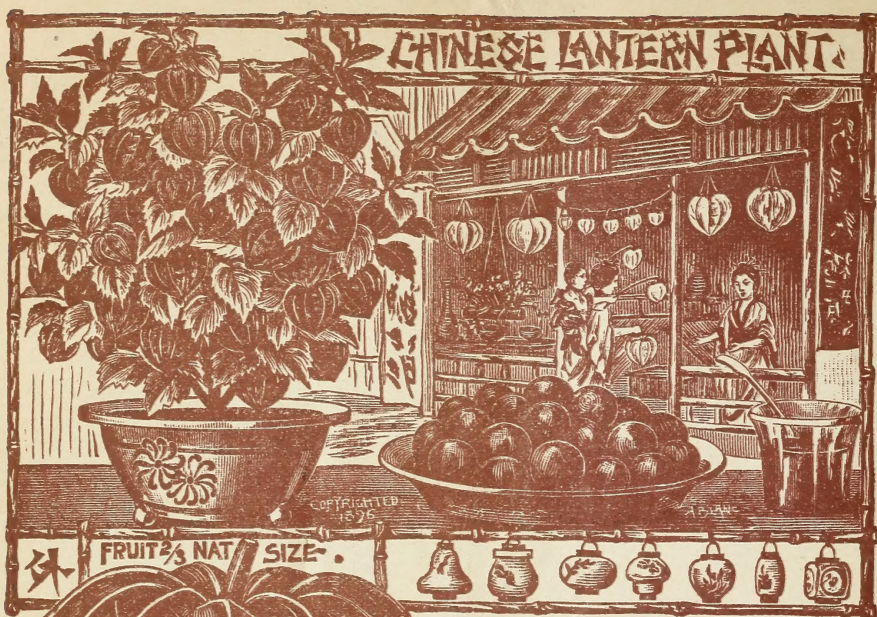 CHINESE LANTERN PLANT.
COPYRIGHTED
1895
A. BLANC
外
FRUIT 2/3 NAT. SIZE.